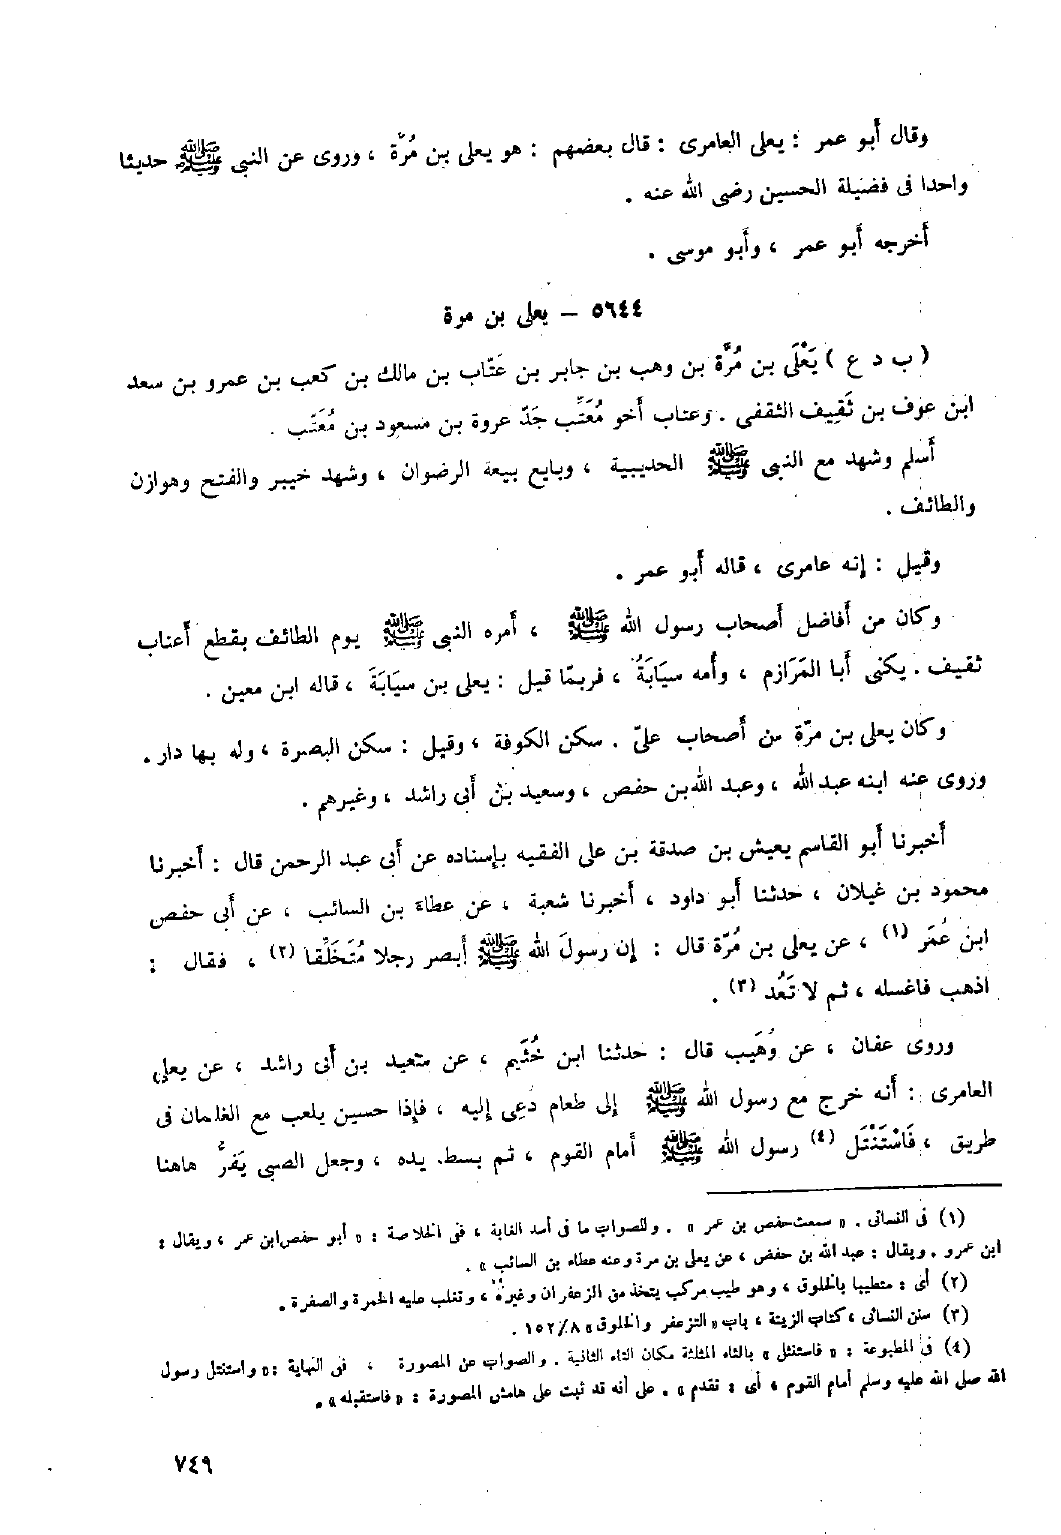 وقال أبو عمر : يعلى العامرى : قال بعضهم : هو يعلى بن مُرّة ، وروى عن النبى ﷺ حديثا
واحدا فى فضيلة الحسين رضى الله عنه .
أخرجه أبو عمر ، وأبو موسى .
٥٦٤٤ – يعلى بن مرة
( ب د ع ) يَعْلَى بن مُرَّة بن وهب بن جابر بن عَتّاب بن مالك بن كعب بن عمرو بن سعد
ابن عوف بن ثَقِيف الثقفى . وعتاب أخو مُعَتِّب جَدّ عروة بن مسعود بن مُعَتّب .
أسلم وشهد مع النبى ﷺ الحديبية ، وبايع بيعة الرضوان ، وشهد خيبر والفتح وهوازن
والطائف .
وقيل : إنه عامرى ، قاله أبو عمر .
وكان من أفاضل أصحاب رسول الله ﷺ ، أمره النبى ﷺ يوم الطائف بقطع أعناب
ثقيف . يكنى أبا المَرَازم ، وأمه سيَابَةُ ، فربمّا قيل : يعلى بن سيَابَةَ ، قاله ابن معين .
وكان يعلى بن مرّة من أصحاب علىّ . سكن الكوفة ، وقيل : سكن البصرة ، وله بها دار .
وروى عنه ابنه عبد الله ، وعبد الله بن حفص ، وسعيد بن أبى راشد ، وغيرهم .
أخبرنا أبو القاسم يعيش بن صدقة بن على الفقيه بإسناده عن أبى عبد الرحمن قال : أخبرنا
محمود بن غيلان ، حدثنا أبو داود ، أخبرنا شعبة ، عن عطاء بن السائب ، عن أبى حفص
ابن عُمَر (١) ، عن يعلى بن مُرّة قال : إن رسولَ الله ﷺ أبصر رجلا مُتَخَلِّقا (٢) ، فقال :
اذهب فاغسله ، ثم لا تَعُد (٣) .
وروى عفان ، عن وُهَيب قال : حدثنا ابن خُثَيم ، عن سعيد بن أبى راشد ، عن يعلى
العامرى : أنه خرج مع رسول الله ﷺ إلى طعام دُعِى إليه ، فإذا حسين يلعب مع الغلمان فى
طريق ، فَاسْتَنْتَل (٤) رسول الله ﷺ أمام القوم ، ثم بسط يده ، وجعل الصبى يَفرُّ هاهنا
(١) فى النسائى . « سمعت حفص بن عمر » . وللصواب ما فى أسد الغابة ، فى الخلاصة : « أبو حفص ابن عمر ، ويقال :
ابن عمرو . ويقال : عبد الله بن حفص ، عن يعلى بن مرة وعنه عطاء بن السائب » .
(٢) أى : متطيبا بالخلوق ، وهو طيب مركب يتخذ من الزعفران وغيره ، وتغلب عليه الحمرة والصفرة .
(٣) سنن النسائى ، كتاب الزينة ، باب « التزعفر والخلوق » ٨/١٥٢ .
(٤) فى المطبوعة : « فاستنثل » بالثاء المثلثة مكان التاء الثانية . والصواب عن المصورة ، فى النهاية : « واستنتل رسول
الله صلى الله عليه وسلم أمام القوم ، أى : تقدم » . على أنه قد ثبت على هامش المصورة : « فاستقبله » .
٧٤٩